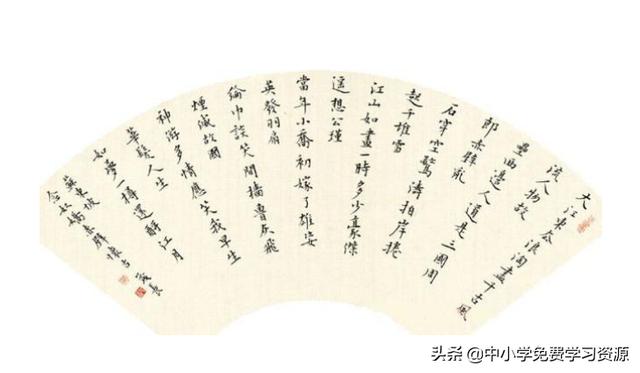 大江東去浪淘盡千古風
流人物故
壘西邊人道是三國周
郎赤壁亂
石穿空驚濤拍岸捲
起千堆雪
江山如畫一時多少豪傑
遥想公瑾
當年小喬初嫁了雄姿
英發羽扇
綸巾談笑間檣櫓灰飛
煙滅故國
神游多情應笑我早生
華髮人生
如夢一樽還酹江月
蘇東坡
念奴嬌赤壁懷古
头条 @中小学免费学习资源